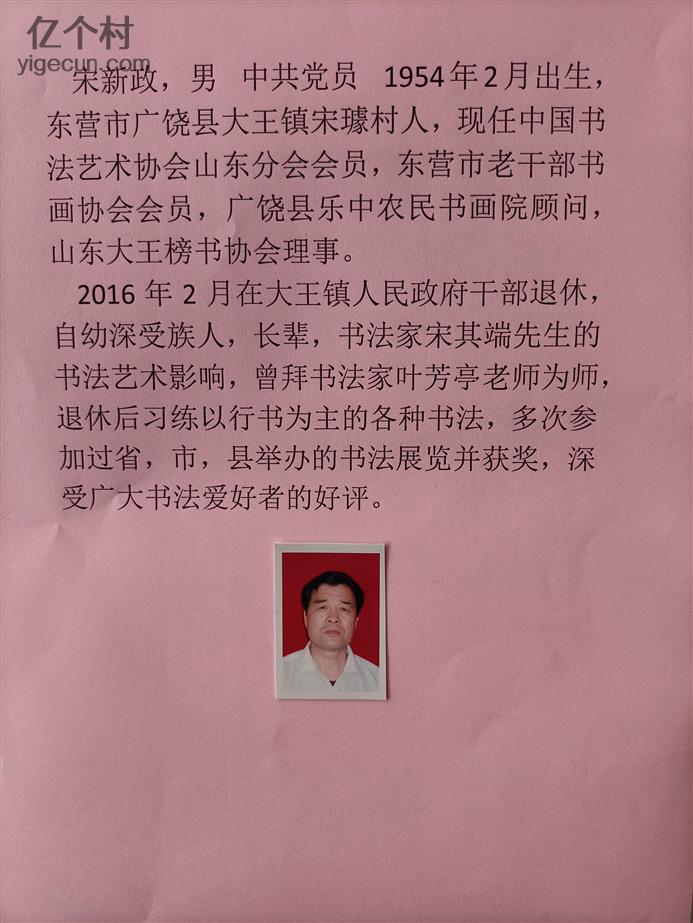 亿个村
yigecun.com
宋新政，男 中共党员 1954年2月出生，
东营市广饶县大王镇宋璩村人，现任中国书
法艺术协会山东分会会员，东营市老干部书
画协会会员，广饶县乐中农民书画院顾问，
山东大王榜书协会理事。
2016 年 2 月在大王镇人民政府干部退休，
自幼深受族人，长辈，书法家宋其端先生的
书法艺术影响，曾拜书法家叶芳亭老师为师，
退休后习练以行书为主的各种书法，多次参
加过省，市，县举办的书法展览并获奖，深
受广大书法爱好者的好评。